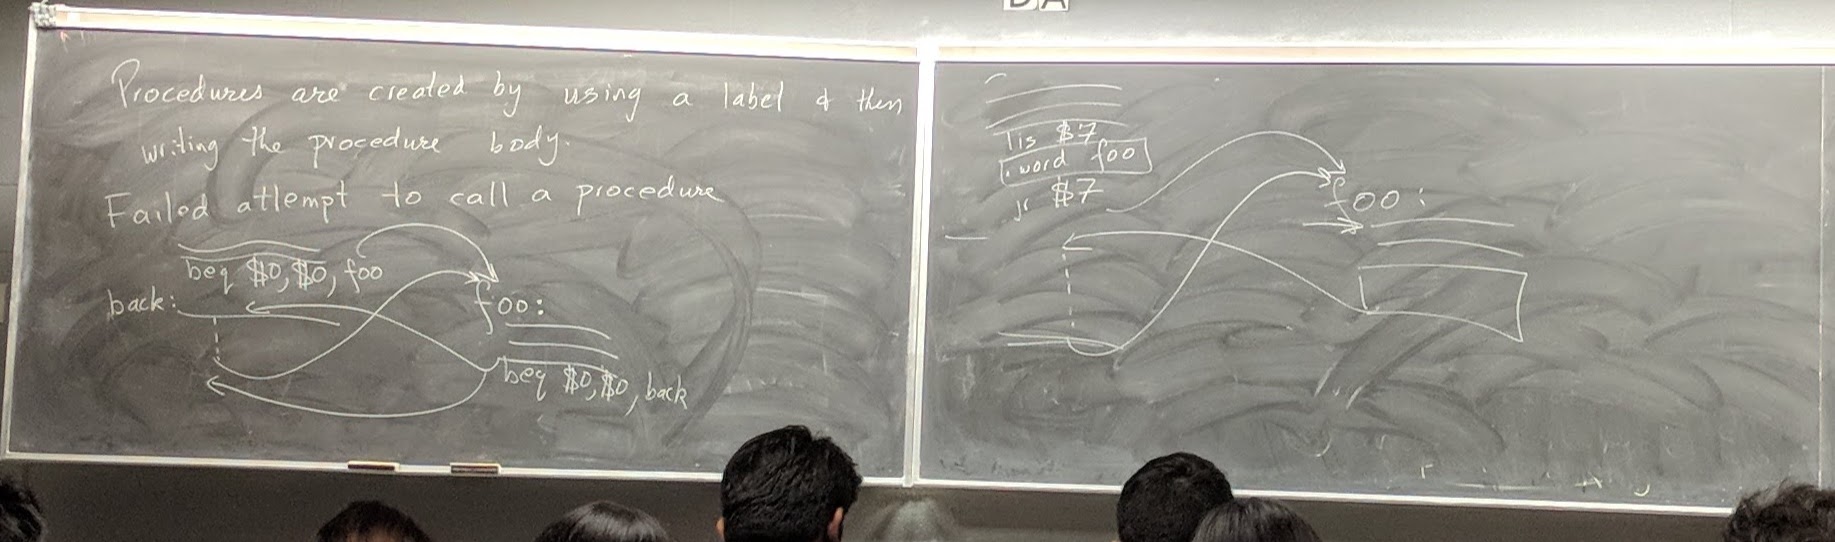 Procedures are created by using a label & then
writing the procedure body.
Failed attempt to call a procedure
beq $0, $0, foo
back:
foo:
beq $0, $0, back
lis $7
.word foo
jr $7
foo: